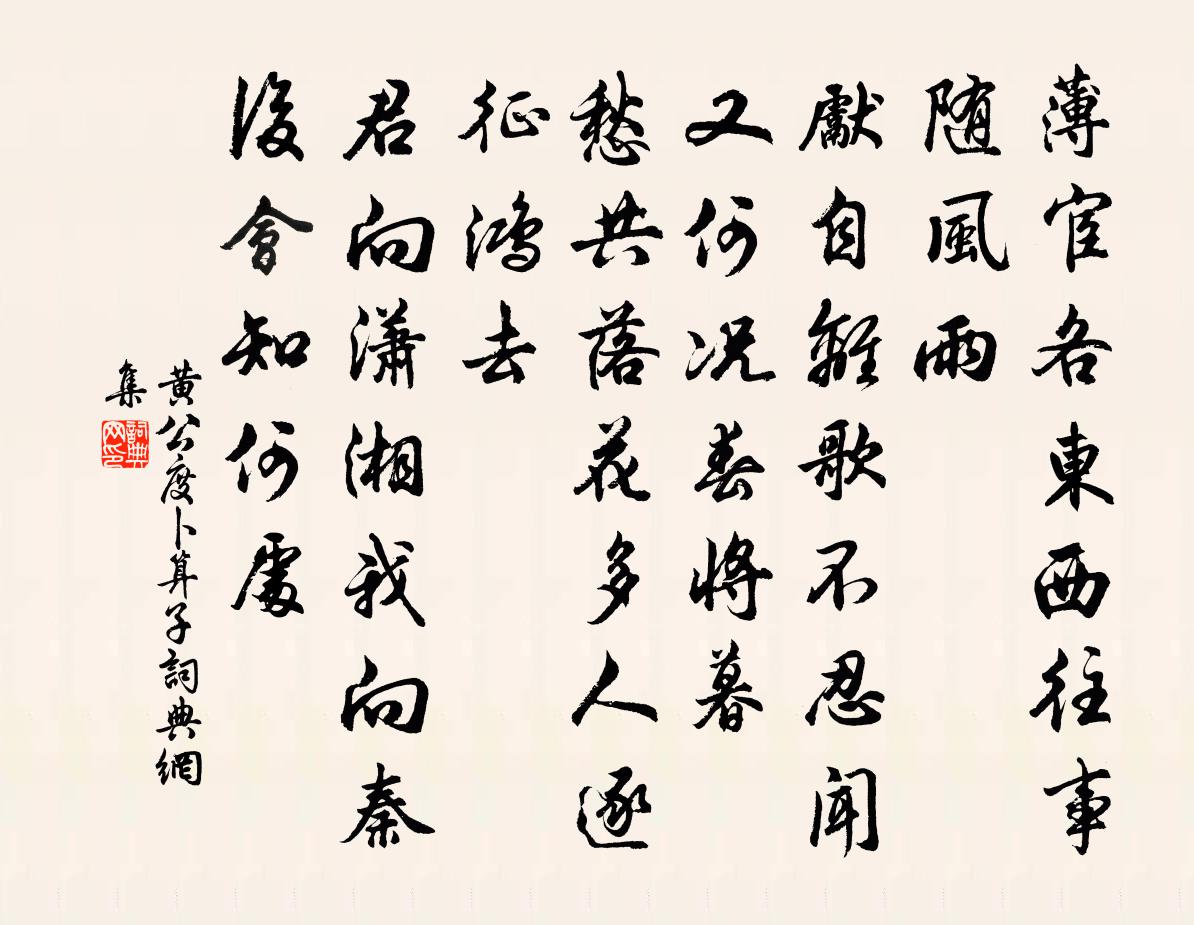 薄宦各東西往事
随風雨
獻自離歌不忍聞
又何况春將暮
愁共落花多人逐
征鴻去
君向瀟湘我向秦
後會知何處
黃公度卜算子詞典網
集
詞典
网印